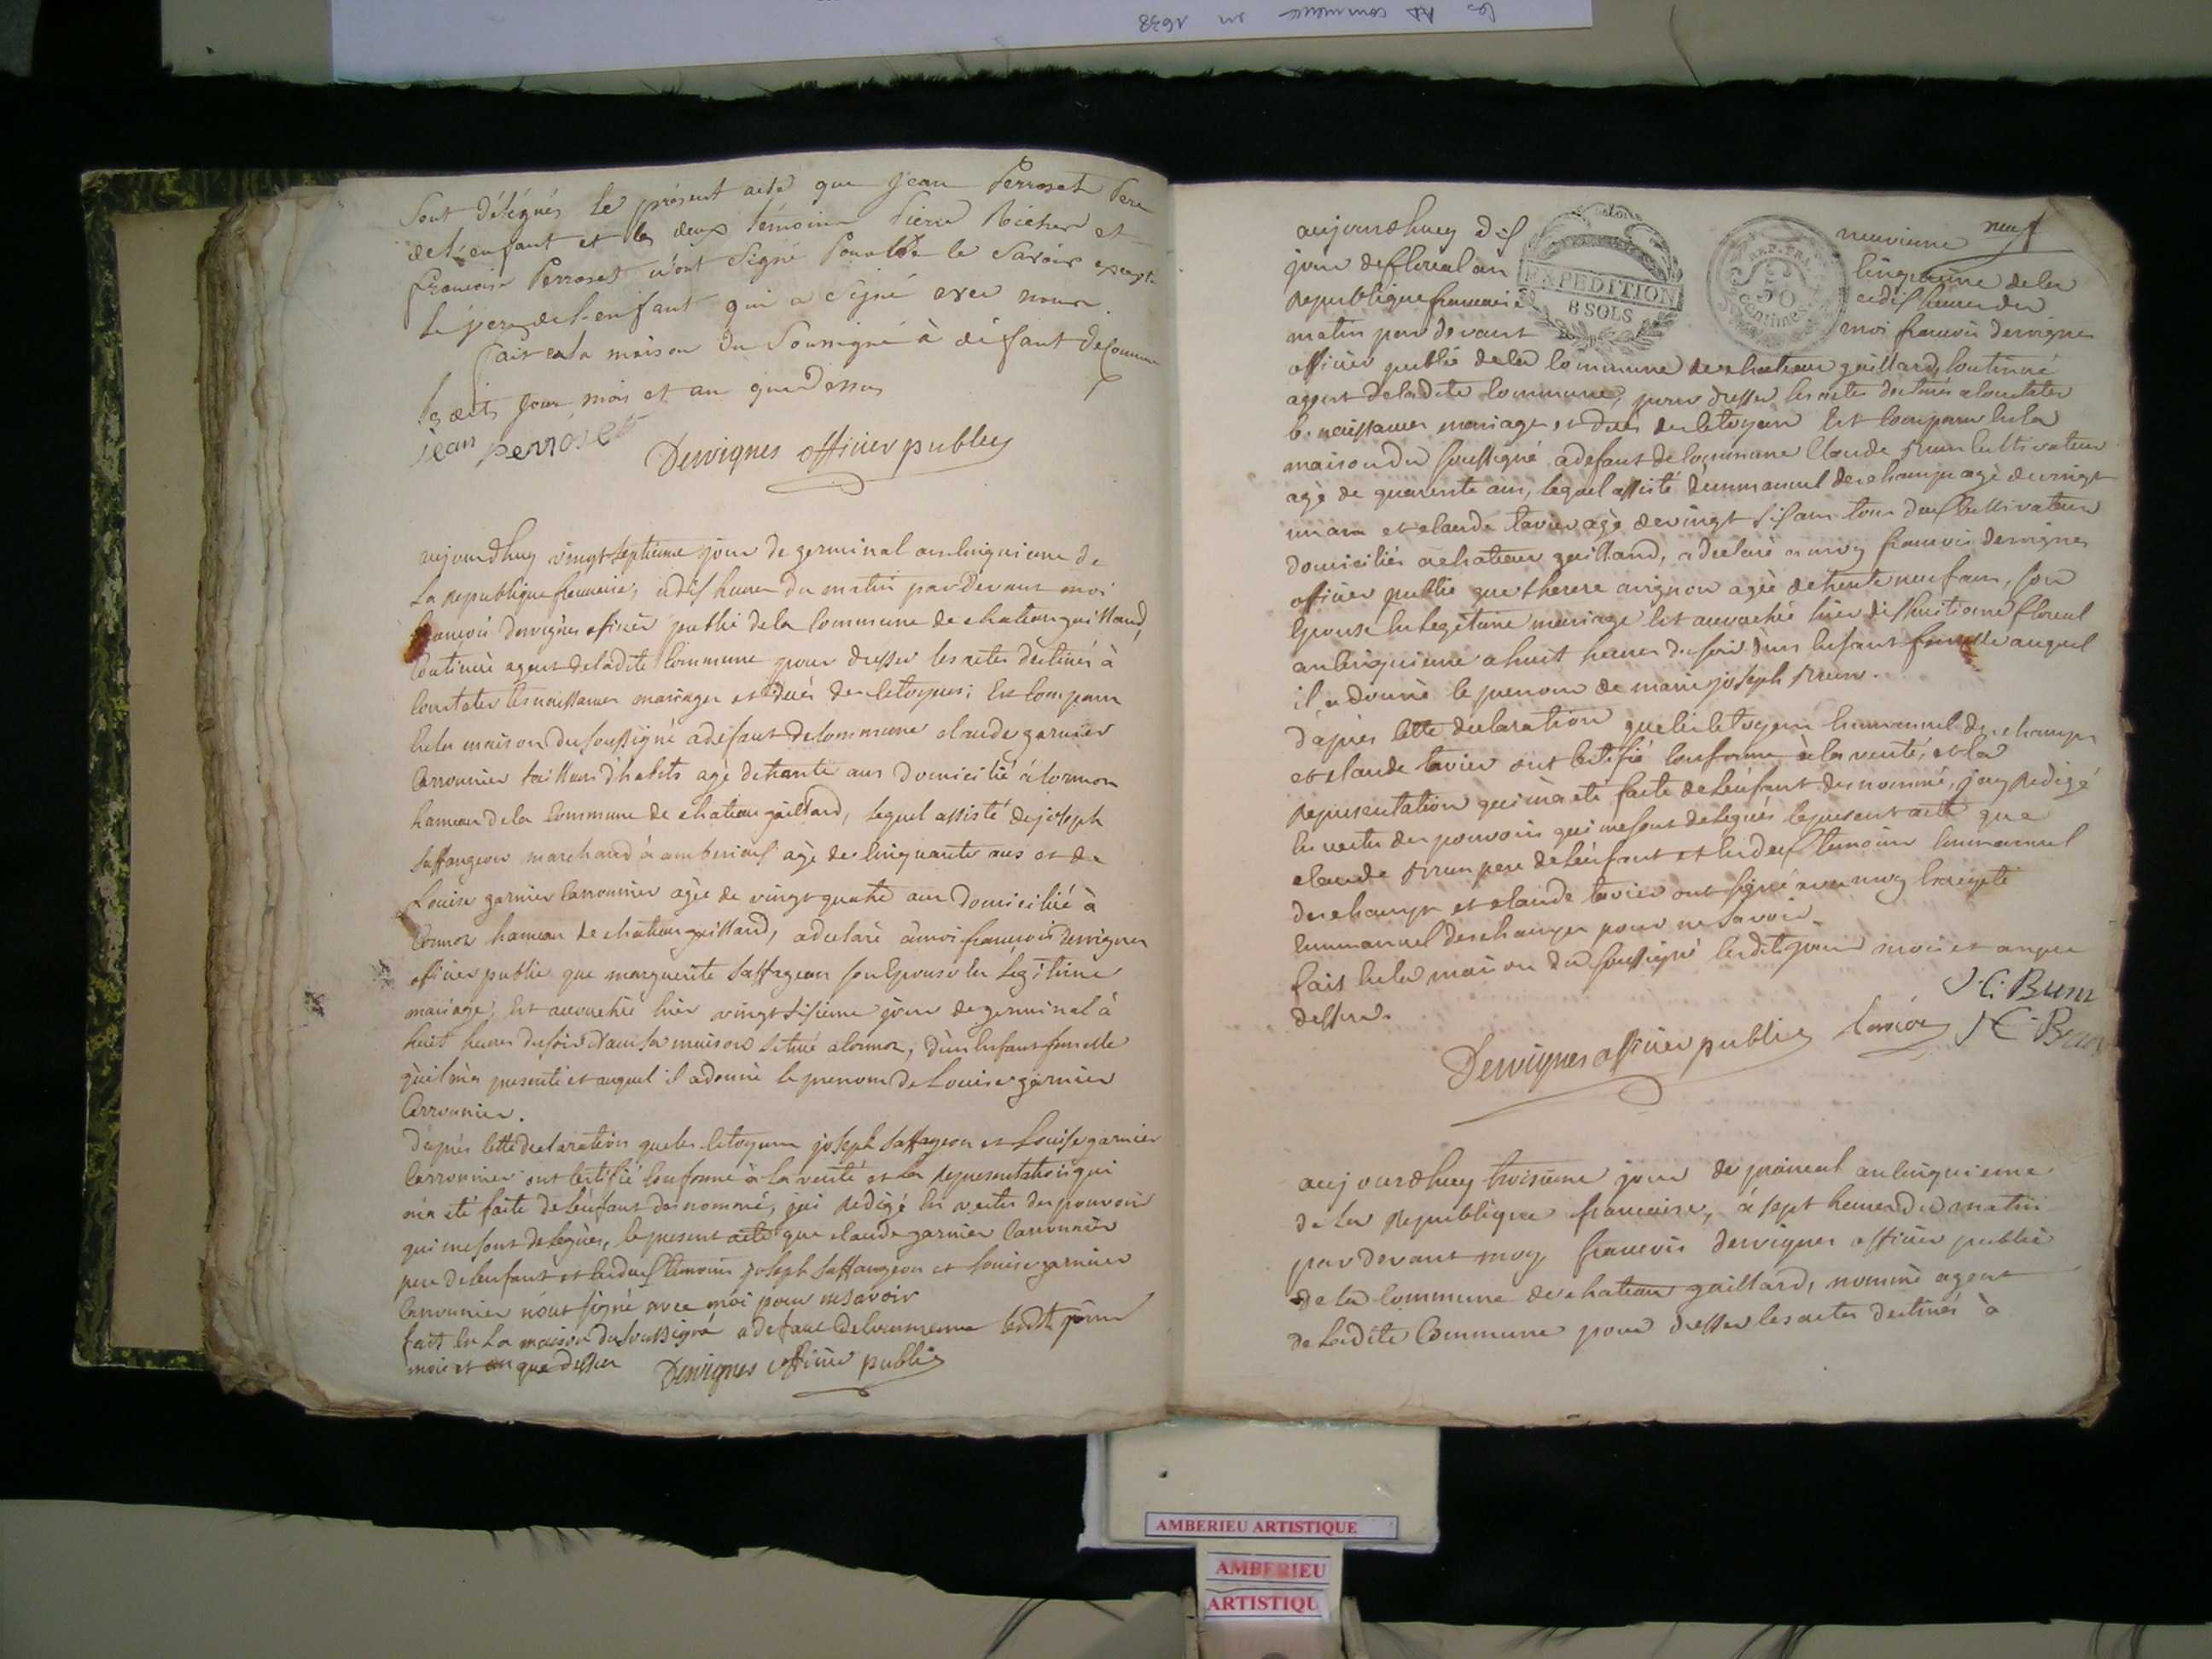 les commence en 1638
Sont délégués le présent acte que Jean Perroset Pere
de l'enfant et les deux témoins Pierre Richer et
françoise Perroset n'ont Signé Pour ne le Savoir excepté
le pere de l'enfant qui a Signé avec nous.
fait en la maison du Soussigné à défaut de Commune
les dits Jour mois et an que Dessus
jean perroset
Dervignes officier public
aujourdhuy vingt septieme jour de germinal an cinquieme de
La Republique francaise, a dix heures du matin par Devant moi
francois dervignes oficier public de la Commune de chateau gaillard,
Continué agent de ladite Commune pour dresser les actes destinés à
Constater les naissances mariages et décés des Citoyens; Est Comparu
en la maison du soussigné a defaut de Commune claude garnier
Carronnier tailleur d'habits agé de trante ans Domicilié à Cormoz
hameau de la Commune de chateau gaillard, lequel assisté de joseph
saffangeon marchand à amberieux agé de Cinquante ans et de
Louise garnier Carronnier agée de vingt quatre ans Domiciliée à
Cormoz hameau de chateau gaillard, a declaré à moi francois dervignes
oficier public que marguerite Saffageon son Epouse en Legitime
mariage, Est accouchée hier vingt sixieme jour de germinal à
huit heures du soir Dans sa maison située a Cormoz, d'un Enfant femelle
qu'il m'a presenté et auquel il a donné le prenom de Louise garnier
Carronnier.
D'après Cette declaration que les Citoyens joseph saffageon et Louise garnier
Carronnier ont Certifié Conforme à la verité et la Representation qui
m'a été faite de l'enfant denommé, jai Redigé En vertu des pouvoirs
qui me sont delegués, le present acte que claude garnier Carronnier
pere de l'enfant et les deux temoins joseph saffangeon et Louise garnier
Carronnier n'ont signé avec moi pour ne savoir
fait En La maison du soussigné a defaut de Commune lesdits jour
mois et an que dessus Dervignes officier public
neuf
aujourdhuy dix neuvieme
jour de floreal an cinquieme de la
Republique francaise a dix heures du
matin par devant moi francois dervignes
EXPEDITION
8 SOLS
REP. FRA.
50
Centimes
officier public de la Commune de chateau gaillard, Continué
agent de ladite Commune, pour dresser les actes destinés a Constater
les naissances mariages, et décés des Citoyens Est Comparu En la
maison du soussigné a defaut de Commune Claude Brun Cultivateur
agé de quarente ans, lequel assisté d'emmanuel deschamps agé de vingt
un ans et claude tavier agé de vingt six ans tous deux Cultivateurs
domiciliés a chateau gaillard, a declaré a moy francois dervignes
officier public que therese avignon agée de trente neuf ans, son
Epouse En Legitime mariage Est accouchée hier dix huitieme floreal
an cinquieme a huit heures du soir d'un Enfant femelle auquel
il a donné le prenom de marie joseph Brun.
D'après Cette declaration que les Citoyens Emmanuel deschamps
et claude tavier ont Certifié Conforme à la verité, et la
Representation qui m'a été faite de l'enfant denommé, j'ay Redigé
En vertu des pouvoirs qui me sont delegués le present acte que
claude Brun pere de l'enfant et les deux temoins Emmanuel
deschamps et claude tavier ont signé avec moy Excepté
Emmanuel deschamps pour ne savoir.
fait En la maison du soussigné lesdits jour mois et an que
dessus.
C. Brun
Dervignes officier public tavier C. Brun
aujourdhuy troisieme jour de prairial an cinquieme
de la Republique francaise, à sept heures du matin
par devant moy francois dervignes officier public
de la Commune de chateau gaillard, nommé agent
de Ladite Commune pour dresser les actes destinés à
AMBERIEU ARTISTIQUE
AMBERIEU
ARTISTIQU